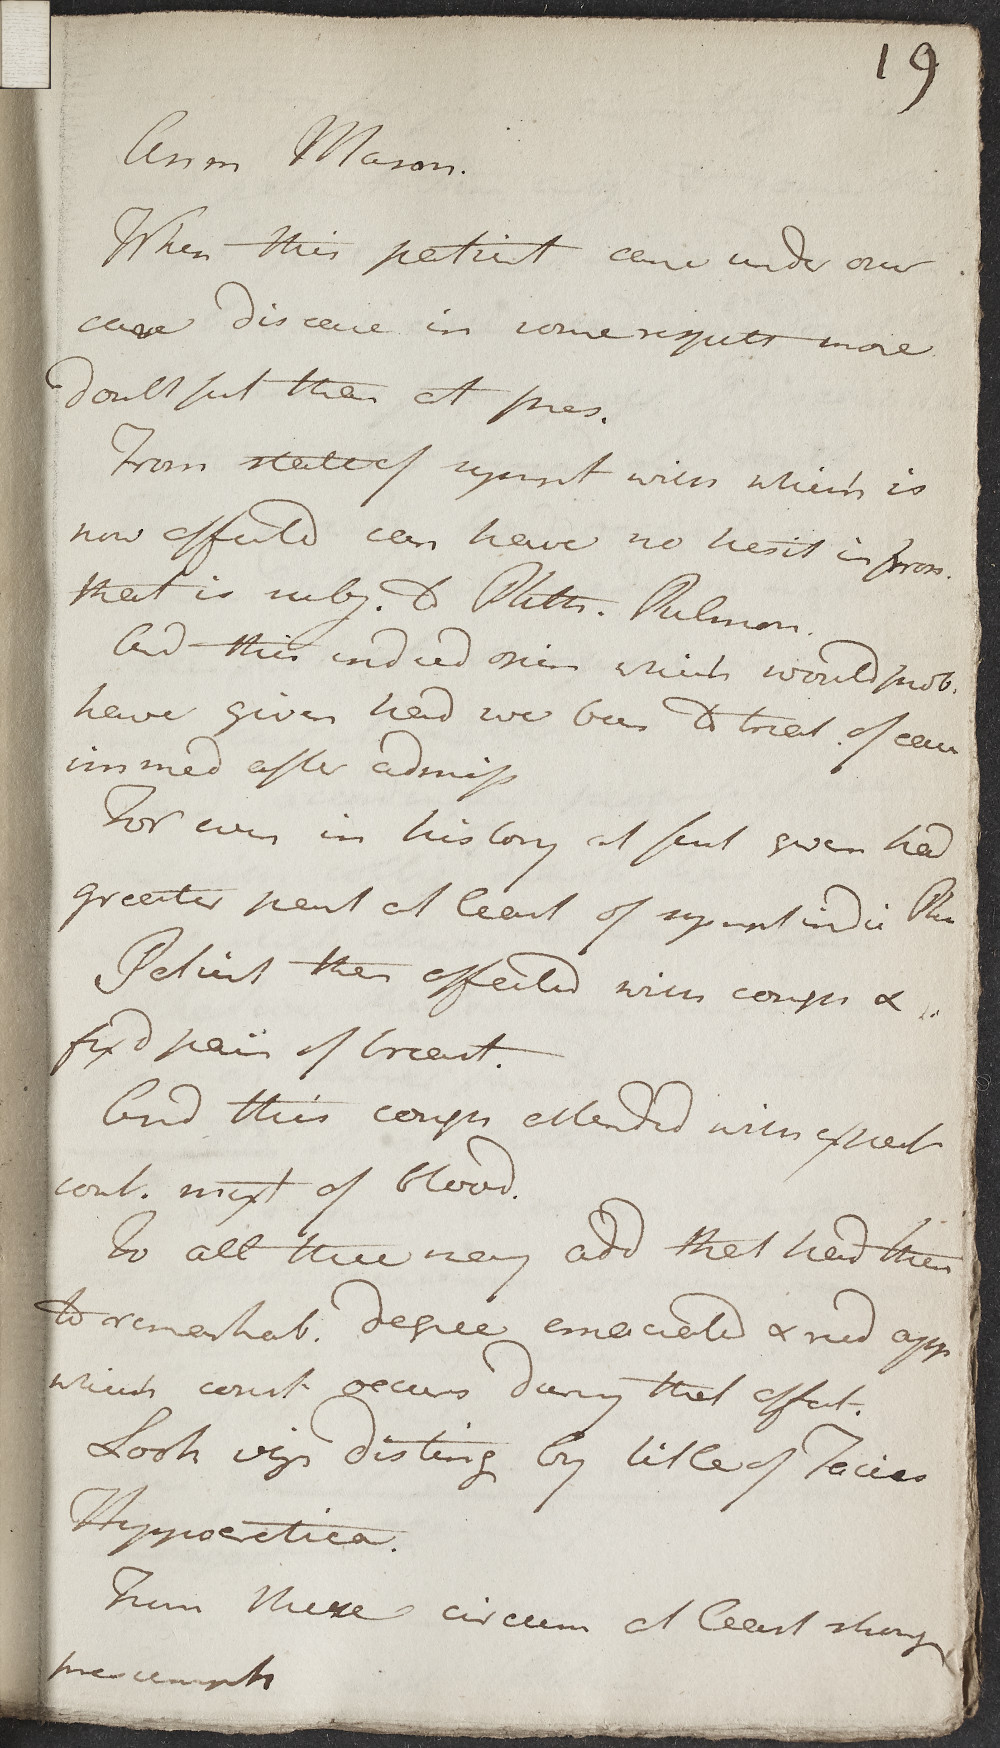 19
Ann Mason.
When this patient came under our
care disease in some respects more
doubtful than at pres.
From state of sympt with which is
now affected can have no hesit in pron.
that is subj. to Phth. Pulmon.
And this indeed opin which would prob.
have given had we been to treat of case
immed after admiss
For even in history at first given had
greater part at least of sympt indic Pht
Patient then affected with cough &
fixd pain of breast.
And this cough attended with expect
cont. mixt of blood.
To all these may add that had then
to remarkab. degree emaciated & had app
which const occurs during that affect.
Look viz disting by title of Facies
Hyppocratica.
From these circum at least strong
presumpt